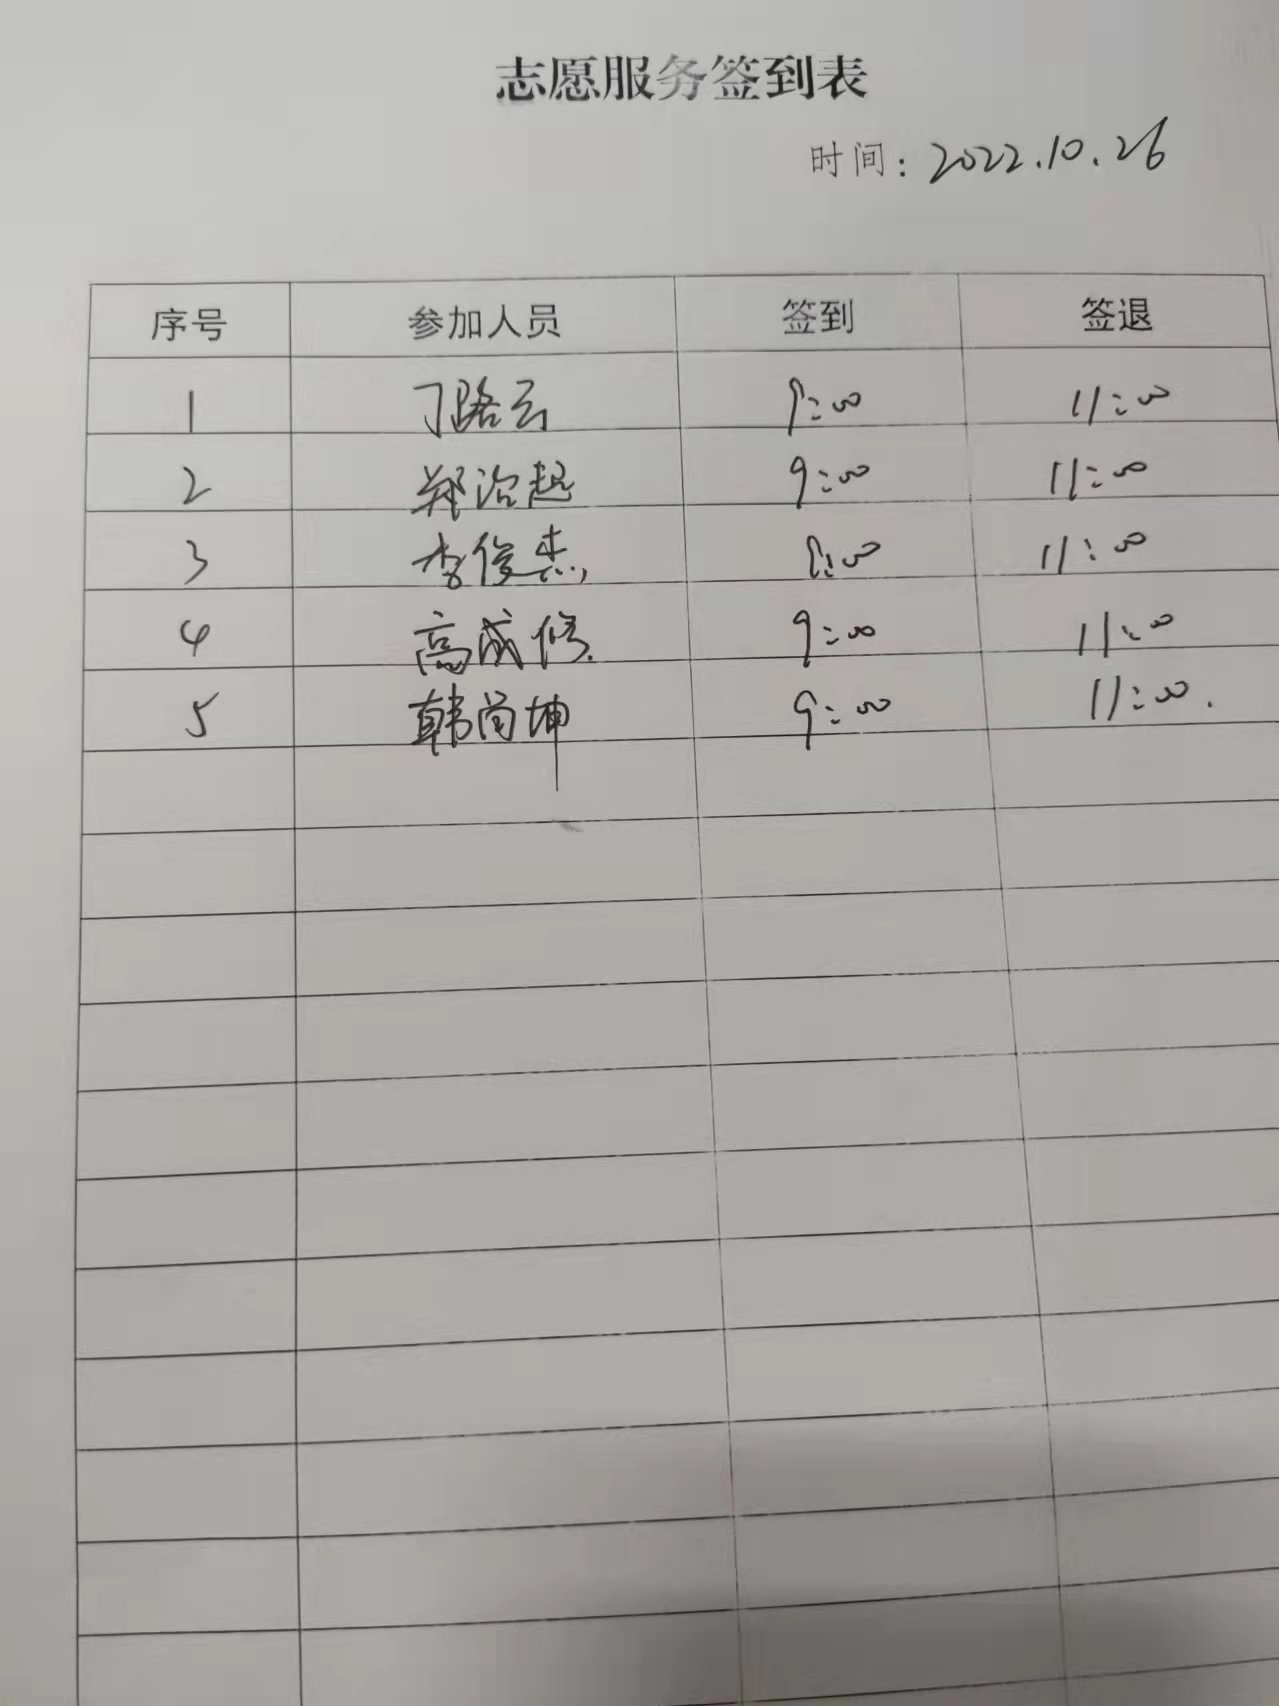 志愿服务签到表
时间：2022.10.26
序号 参加人员 签到 签退
1 丁路云 9:00 11:00
2 郑治超 9:00 11:00
3 李俊杰 9:00 11:00
4 高成修 9:00 11:00
5 韩尚坤 9:00 11:00